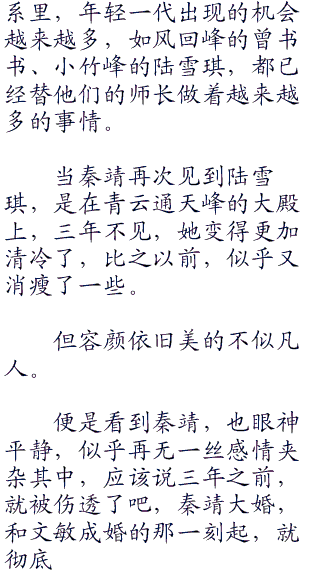 系里，年轻一代出现的机会
越来越多，如风回峰的曾书
书、小竹峰的陆雪琪，都已
经替他们的师长做着越来越
多的事情。
当秦靖再次见到陆雪
琪，是在青云通天峰的大殿
上，三年不见，她变得更加
清冷了，比之以前，似乎又
消瘦了一些。
但容颜依旧美的不似凡
人。
便是看到秦靖，也眼神
平静，似乎再无一丝感情夹
杂其中，应该说三年之前，
就被伤透了吧，秦靖大婚，
和文敏成婚的那一刻起，就
彻底